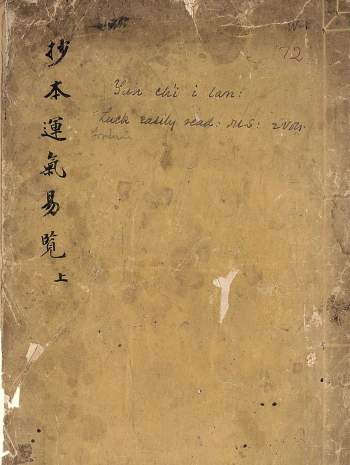 抄本運氣易覧上
72
Yun chi i lan:
Luck easily read: M.S: 2 vols.